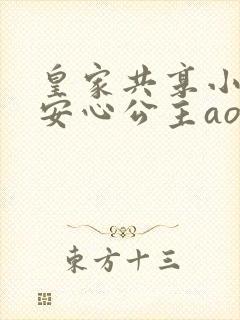 皇家共享小
安心公主ao
东方十三